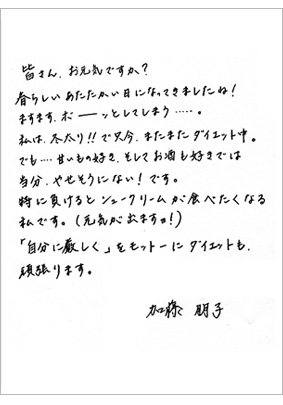 皆さん、お元気ですか?
春らしいあたたかい日になってきましたね!
ますます、ボーーッとしてしまう……。
私は、太太り!!で只今、またまたダイエット中。
でも…甘いもの好き、そしてお酒も好きでは
当分、やせそうにない!です。
特に負けるとシュークリームが食べたくなる
私です。(元気が出ますョ!)
「自分に厳しく」をモットーにダイエットも、
頑張ります。
加藤 朋子